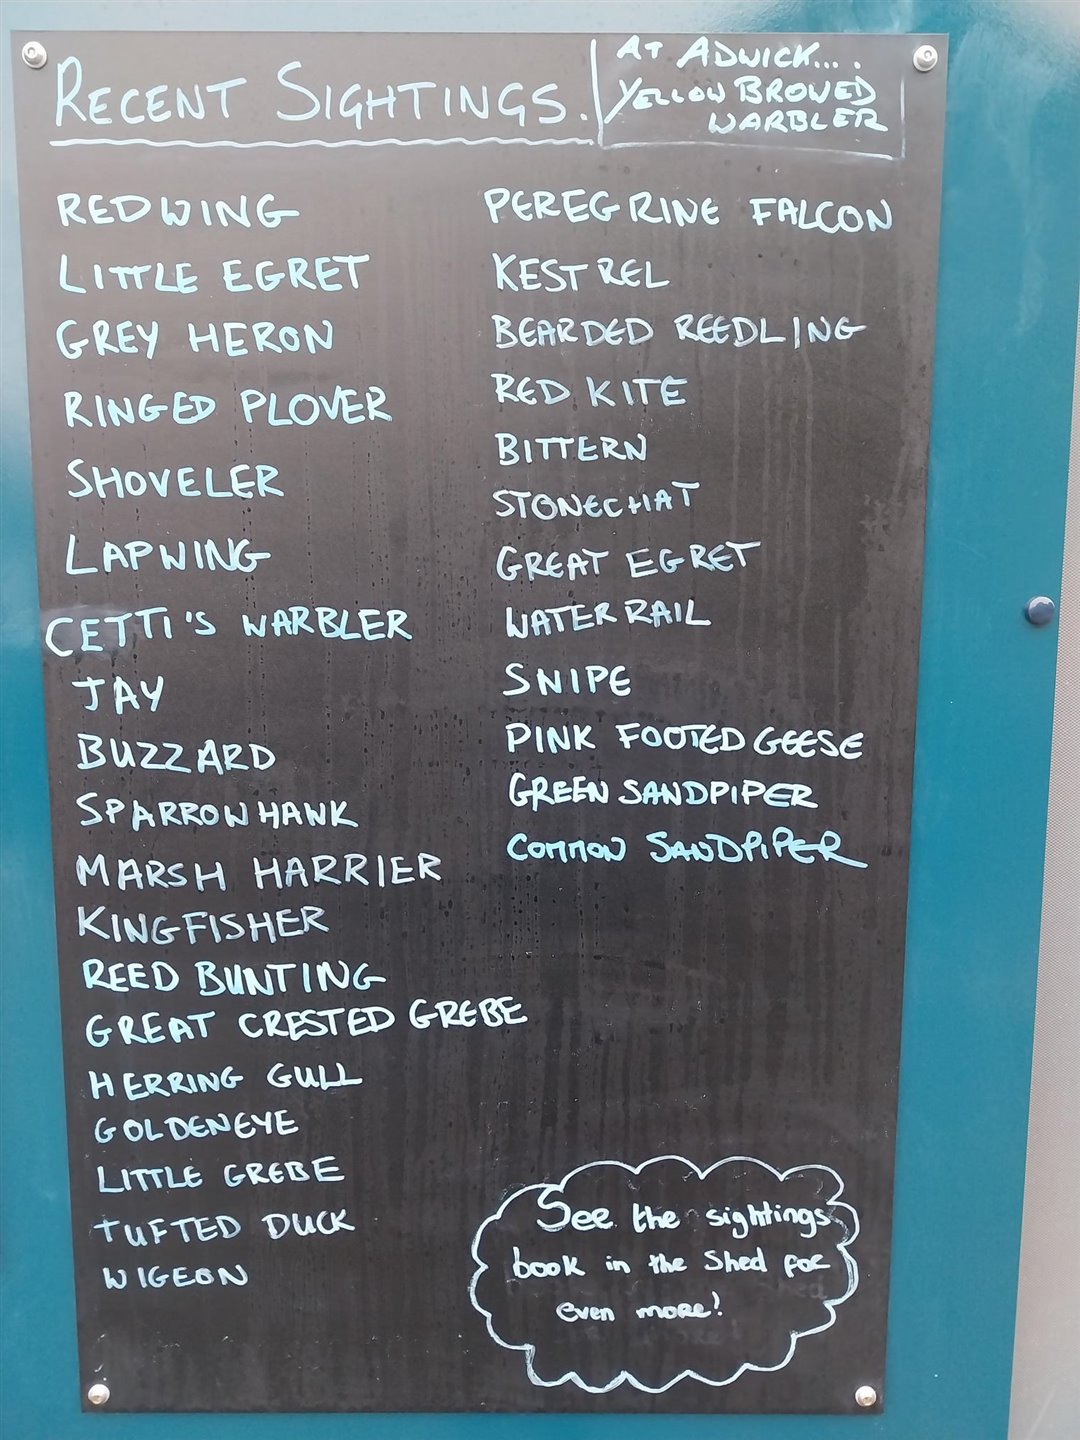 RECENT SIGHTINGS.
AT ADWICK....
YELLOW BROWED
WARBLER
REDWING
LITTLE EGRET
GREY HERON
RINGED PLOVER
SHOVELER
LAPWING
CETTI'S WARBLER
JAY
BUZZARD
SPARROWHAWK
MARSH HARRIER
KINGFISHER
REED BUNTING
GREAT CRESTED GREBE
HERRING GULL
GOLDENEYE
LITTLE GREBE
TUFTED DUCK
WIGEON
PEREGRINE FALCON
KESTREL
BEARDED REEDLING
RED KITE
BITTERN
STONECHAT
GREAT EGRET
WATER RAIL
SNIPE
PINK FOOTED GEESE
GREEN SANDPIPER
COMMON SANDPIPER
See the sightings
book in the Shed for
even more!